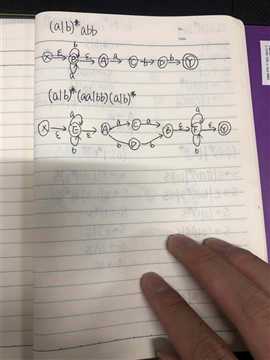 (a|b)*abb
b
X ε B ε A a C b D b Y
a
(a|b)*(aa|bb)(a|b)*
a a a a
X ε E ε A C B ε F ε Y
b b D b b